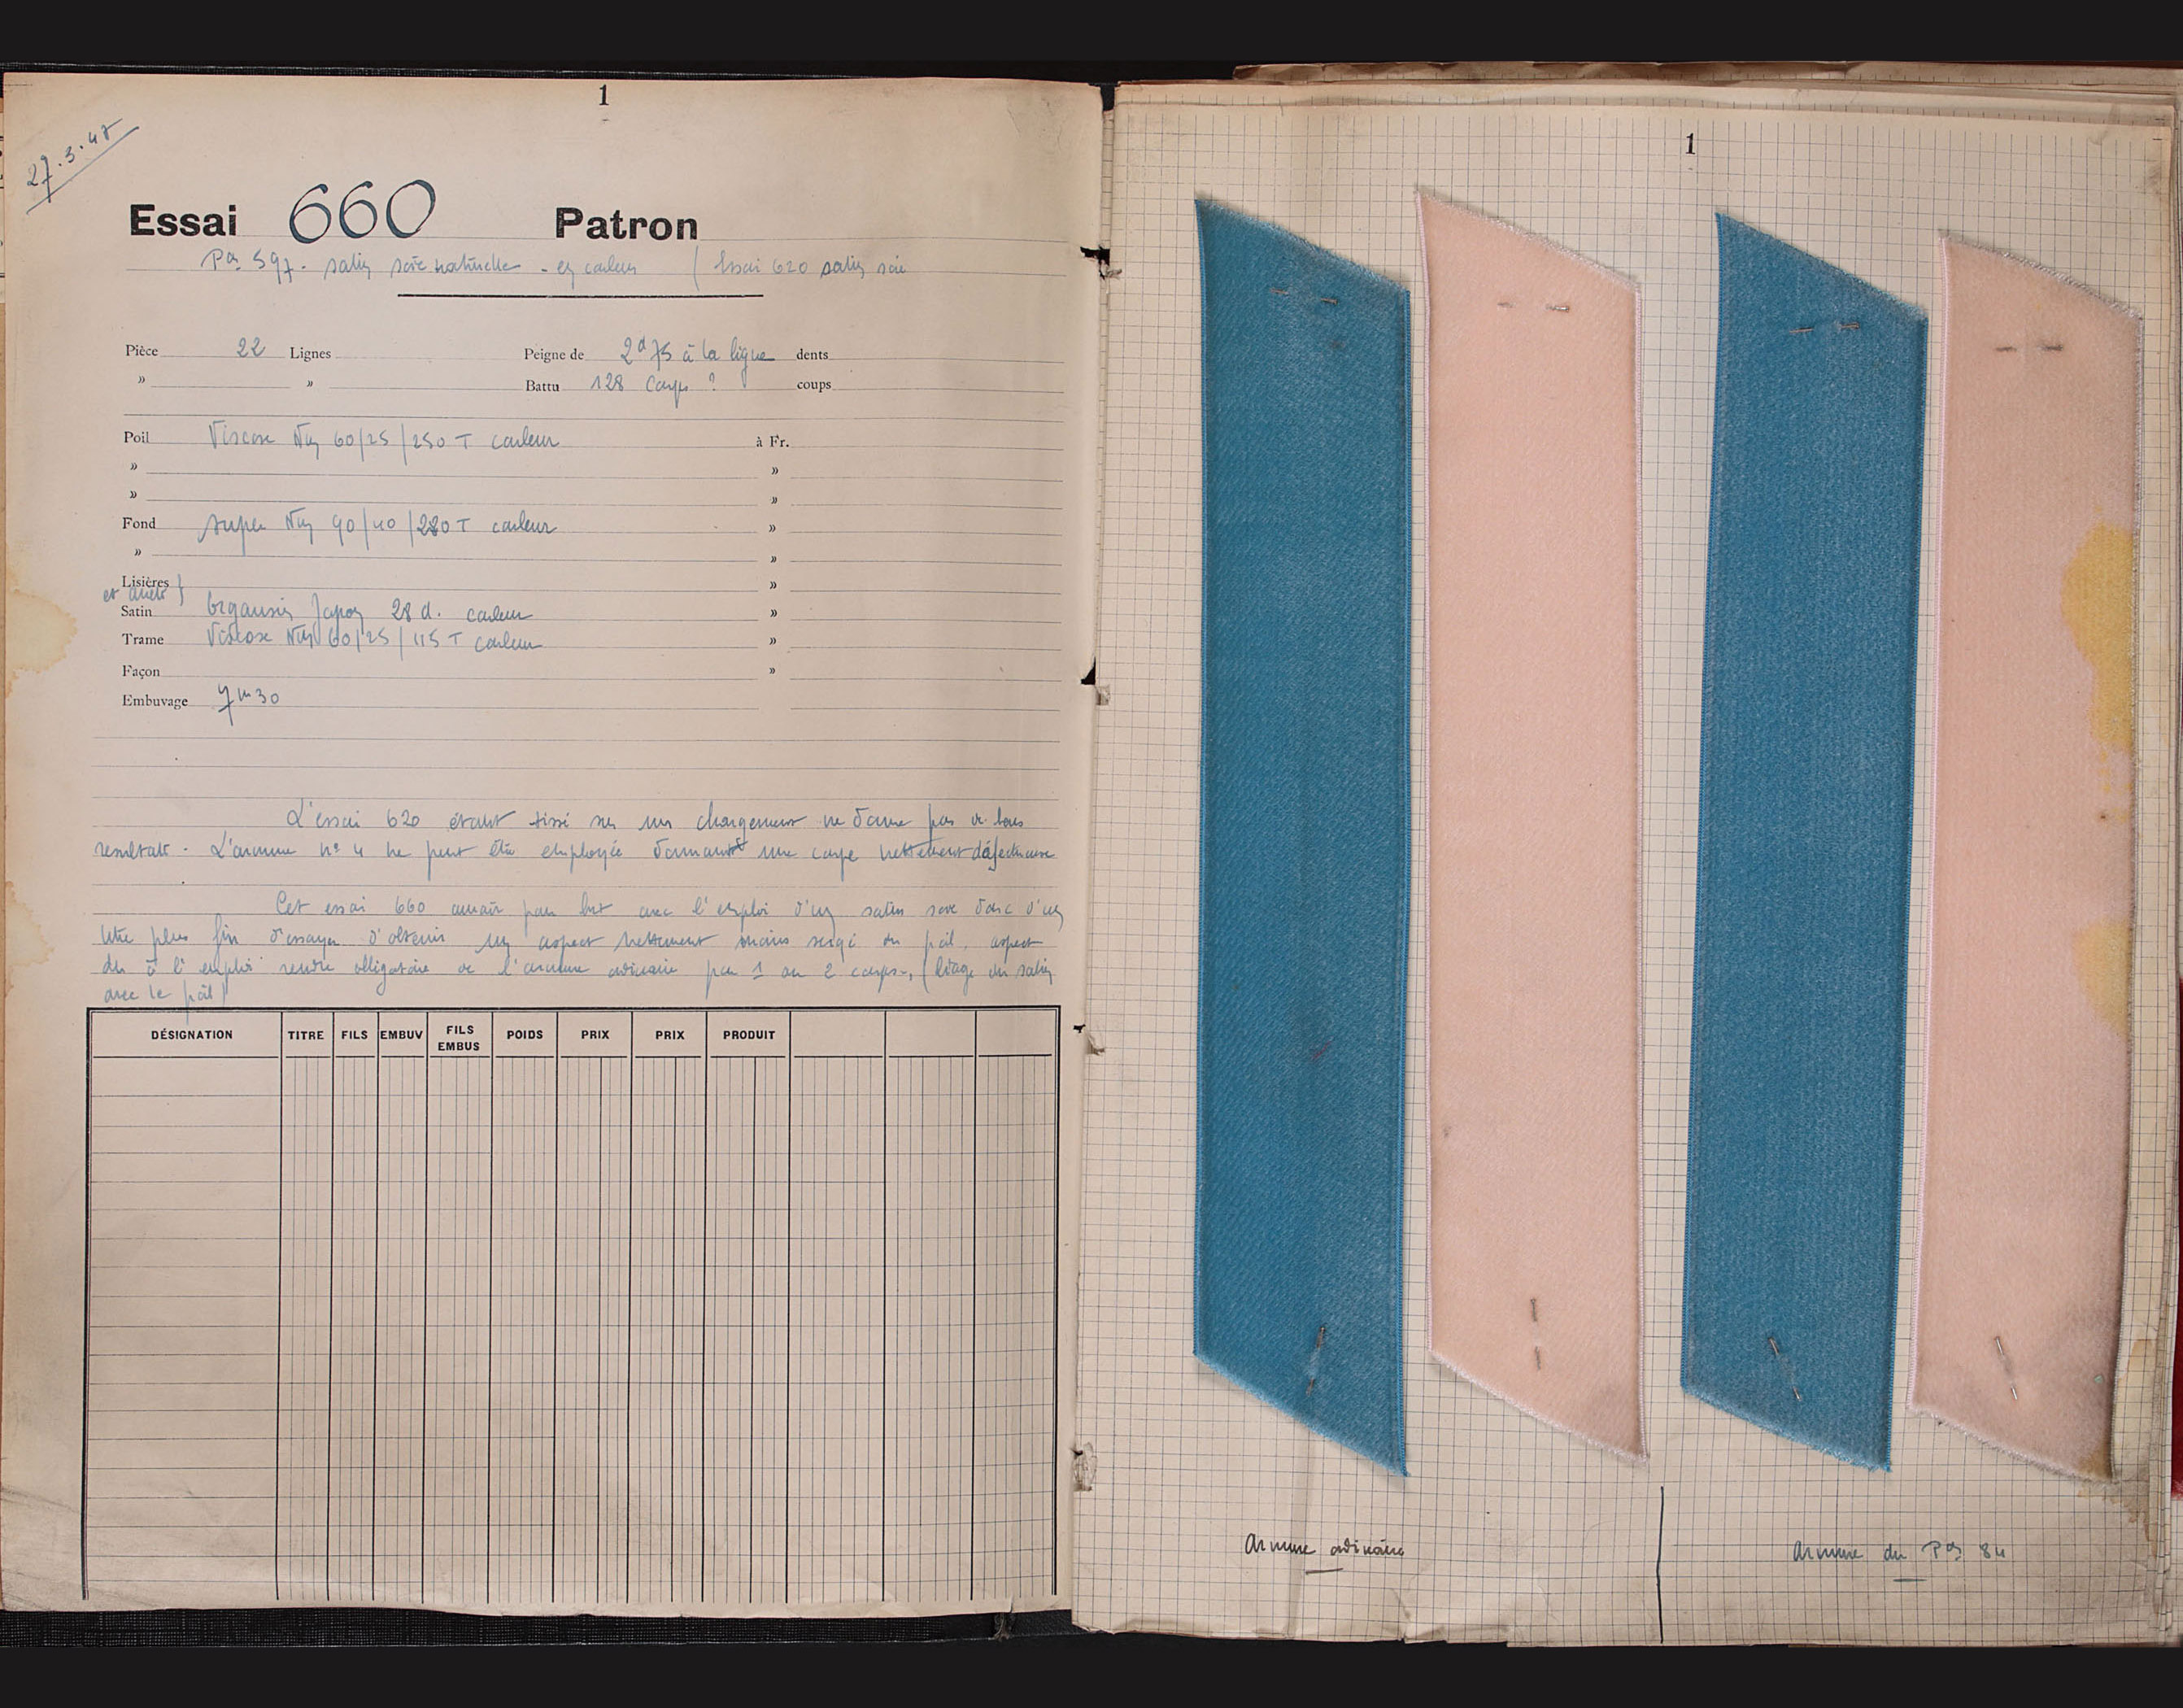 1
27.3.47
Essai 660 Patron
Pon 597. satin soie naturelle - en couleur ( Essai 620 satin soie
Pièce 22 Lignes Peigne de 2d75 à la ligne dents
» » Battu 128 coups ? coups
Poil Viscose Nuy 60/25/250 T couleur à Fr.
» »
» »
Fond super Nuy 90/40/220 T couleur »
» »
Lisières »
et arrêts }
Satin Organsin Japon 28 d. couleur »
Trame Viscose Nuy 60/25/115 T couleur »
Façon »
Embuvage 7m30
L'essai 620 étant tissé sur un chargement ne donne pas de bons
resultats - L'armure n° 4 ne peut être employée donnant une coupe nettement défectueuse
Cet essai 660 aurait pour but avec l'emploi d'un satin soie donc d'un
titre plus fin d'essayer d'obtenir un aspect nettement moins sergé du poil, aspect
du à l'emploi rendu obligatoire de l'armure ordinaire par 1 ou 2 coups-, (liage du satin
avec le poil)
DÉSIGNATION TITRE FILS EMBUV FILS EMBUS POIDS PRIX PRIX PRODUIT
1
Armure ordinaire
Armure du Pon 84